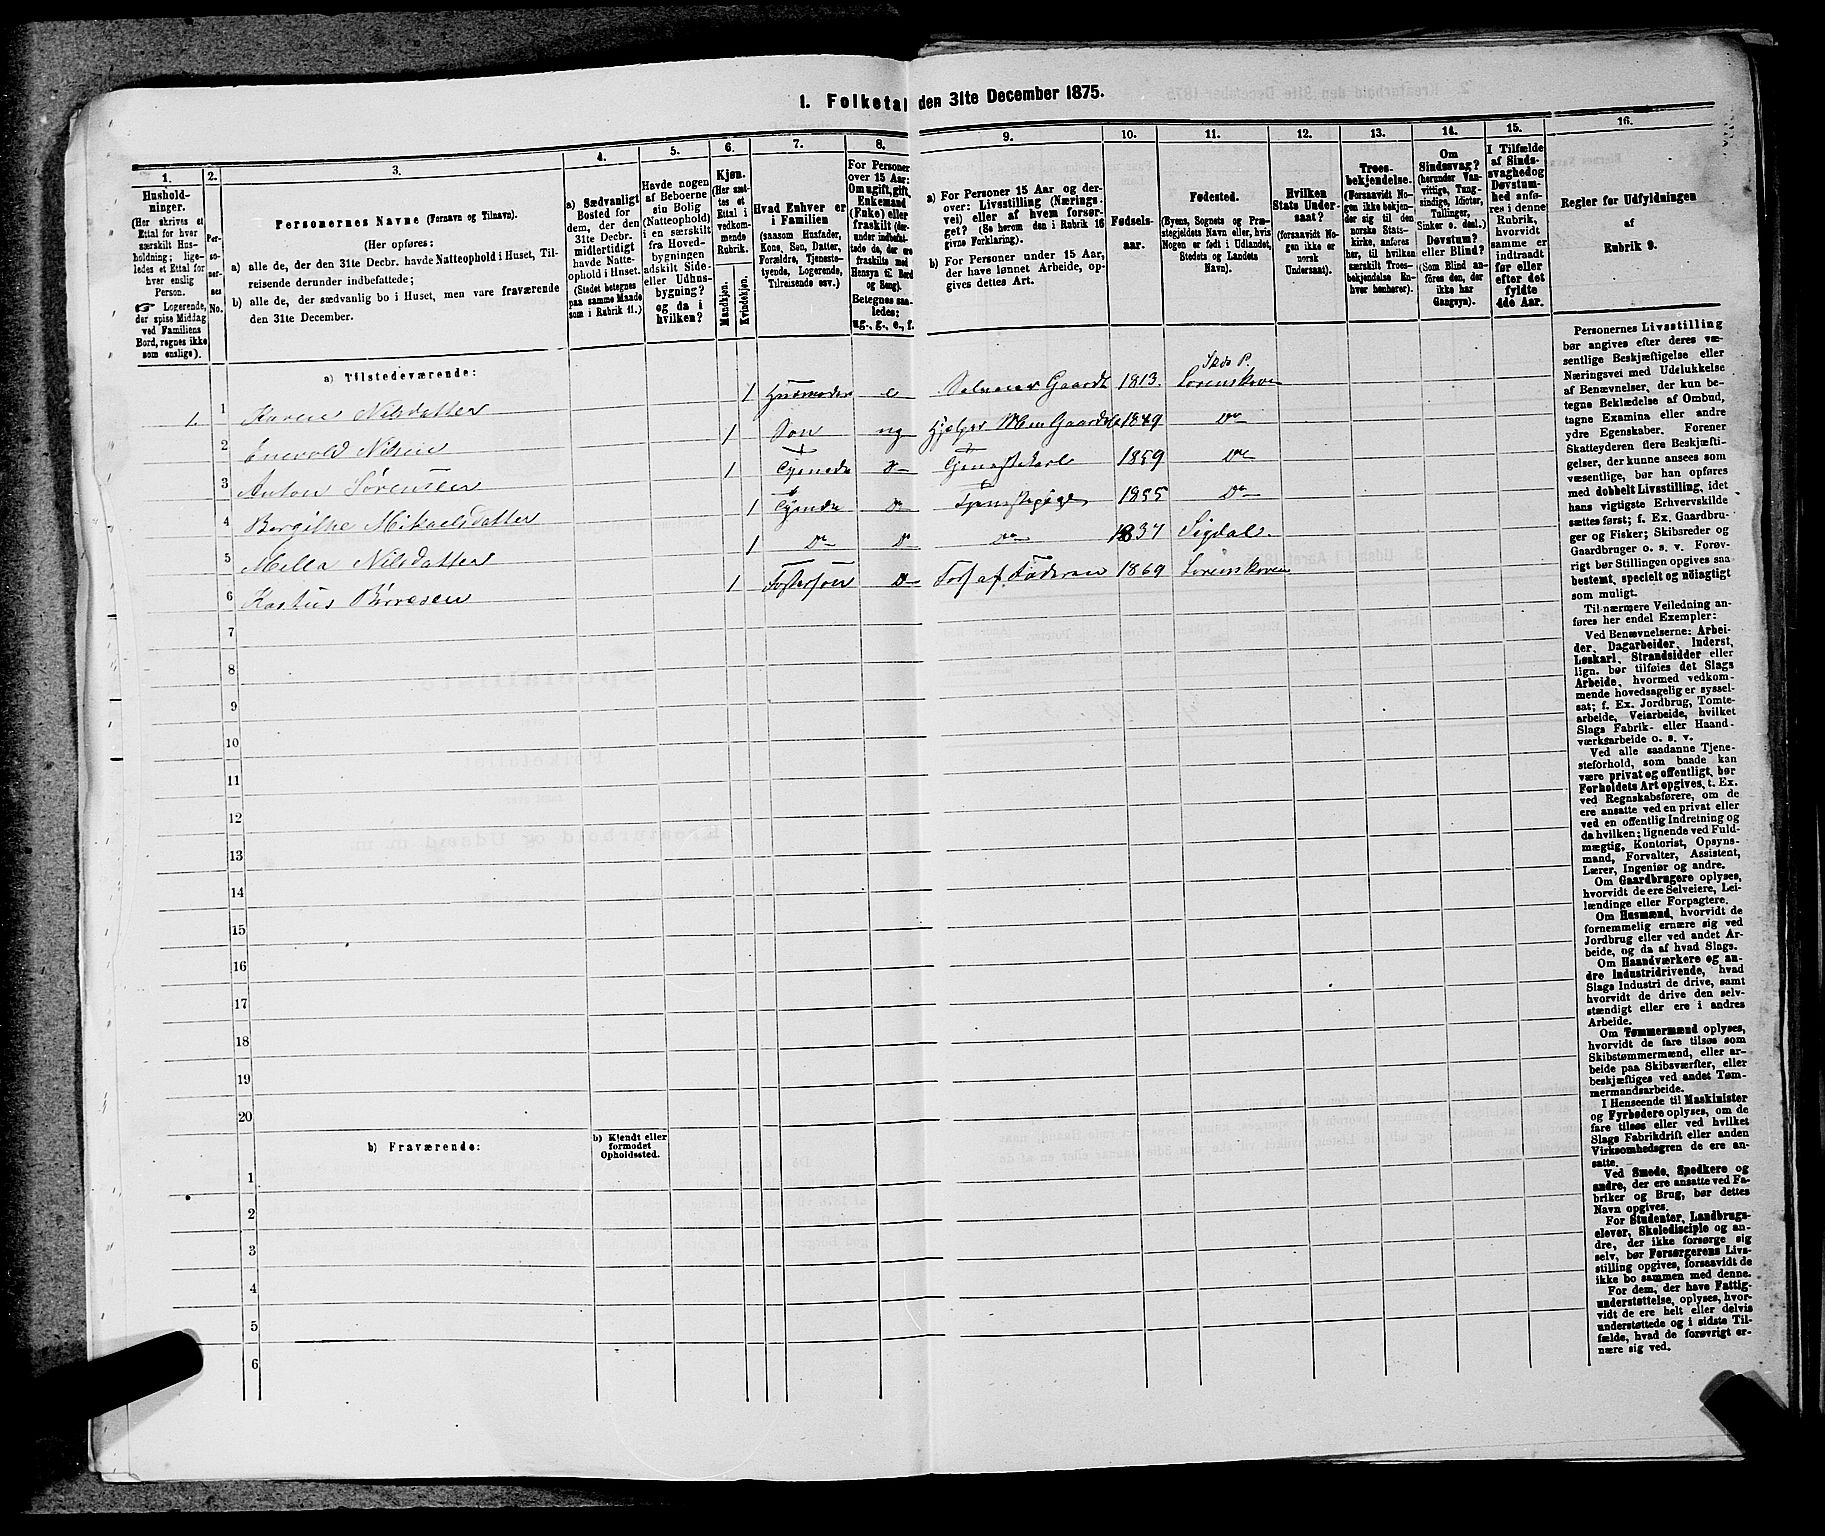 1. Folketal den 31te December 1875.
1.
2.
3.
4.
5.
6.
7.
8.
9.
10.
11.
12.
13.
14.
15.
16.
Hushold-
ninger.
(Her skrives et
Ettal for hver
særskilt Hus-
holdning; lige-
ledes et Ettal for
hver enslig
Person.
☞ Logerende,
der spise Middag
ved Familiens
Bord, regnes ikke
som enslige).
Per-
so-
ner-
nes
No.
Personernes Navne (Fornavn og Tilnavn).
(Her opføres:
a) alle de, der den 31te Decbr. havde Natteophold i Huset, Til-
reisende derunder indbefattede;
b) alle de, der sædvanlig bo i Huset, men vare fraværende
den 31te December.
a) Sædvanligt
Bosted for
dem, der den
31te Decbr.
midlertidigt
havde Natte-
ophold i Huset.
(Stedet betegnes
paa samme Maade
som i Rubrik 11.)
Havde nogen
af Beboerne
sin Bolig
(Natteophold)
i en særskilt
fra Hoved-
bygningen
adskilt Side-
eller Udhus-
bygning?
og da i
hvilken?
Kjøn.
(Her sæt-
tes et
Ettal i
vedkom-
mende
Rubrik.
Mandkjøn.
Kvindekjøn.
Hvad Enhver er
i Familien
(saasom Husfader,
Kone, Søn, Datter,
Forældre, Tjeneste-
tyende, Logerende,
Tilreisende osv.)
For Personer
over 15 Aar:
Om ugift, gift,
Enkemand
(Enke) eller
fraskilt (der-
under indbefat-
tede de, der ere
fraskilte med
Hensyn til Bord
og Seng).
Betegnes saa-
ledes:
ug., g., e., f.
a) For Personer 15 Aar og der-
over: Livsstilling (Nærings-
vei) eller af hvem forsør-
get? (Se herom den i Rubrik 16
givne Forklaring).
b) For Personer under 15 Aar,
der have lønnet Arbeide, op-
gives dettes Art.
Fødsels-
aar.
Fødested.
(Byens, Sognets og Præ-
stegjeldets Navn eller, hvis
Nogen er født i Udlandet,
Stedets og Landets
Navn).
Hvilken
Stats Under-
saat?
(forsaavidt No-
gen ikke er
norsk
Undersaat).
Troes-
bekjendelse.
(Forsaavidt No-
gen ikke bekjen-
der sig til den
norske Stats-
kirke, anføres
her, til hvilken
særskilt Troes-
bekjendelse En-
hver henhører).
Om
Sindssvag?
(herunder Van-
vittige, Tung-
sindige, Idioter,
Tullinger,
Sinker o. desl.)
Døvstum?
eller Blind?
(Som Blind an-
føres den, der
ikke har
Gangsyn).
I Tilfælde
af Sinds-
svaghed og
Døvstum-
hed anfø-
res i denne
Rubrik,
hvorvidt
samme er
indtraadt
før eller ef-
ter det
fyldte
4de Aar.
Regler for Udfyldningen
af
Rubrik 9.
a) Tilstedeværende:
1. 1 Karen Nilsdatter 1 Husmoder e Selveier Gaardb 1813. Skds P. Lørenskoven
2 Enevold Nilsen 1 Søn ug Hjelper Mor Gaardb 1849 Do
3 Anton Sørensen 1 Do 1859 Do
4 Bergithe Mikaelsdatter 1 Do 1855 Do
5 Mella Nilsdatter 1 Do Do Do 1837 Sigdal.
6 Kastus Børresen 1 Fostersøn Do Fors af Faderen 1869 Lørenskoven
7
8
9
10
11
12
13
14
15
16
17
18
19
20
b) Fraværende:
b) Kjendt eller
formodet
Opholdssted.
1
2
3
4
5
6
Personernes Livsstilling
bør angives efter deres væ-
sentlige Beskjæftigelse eller
Næringsvei med Udelukkelse
af Benævnelser, der kun be-
tegne Beklædelse af Ombud,
tagne Examina eller andre
ydre Egenskaber. Forener
Skatteyderen flere Beskjæfti-
gelser, der kunne ansees som
væsentlige, bør han opføres
med dobbelt Livsstilling, idet
hans vigtigste Erhvervskilde
sættes først; f. Ex. Gaardbru-
ger og Fisker; Skibsreder og
Gaardbruger o. s. v. Forøv-
rigt bør Stillingen opgives saa
bestemt, specielt og nøiagtigt
som muligt.
Til nærmere Veiledning an-
føres her endel Exempler:
Ved Benævnelserne: Arbei-
der, Dagarbeider, Inderst,
Løskarl, Strandsidder eller
lign. bør tilføies det Slags
Arbeide, hvormed vedkom-
mende hovedsagelig er syssel-
sat; f. Ex. Jordbrug, Tomte-
arbeide, Veiarbeide, hvilket
Slags Fabrik- eller Haand-
værksarbeide o. s. v.
Ved alle saadanne Tjene-
steforhold, som baade kan
være privat og offentligt, bør
Forholdets Art opgives, t. Ex.
ved Regnskabsførere, om de
ere ansatte ved en privat eller
ved en offentlig Indretning og
da hvilken; lignende ved Fuld-
mægtig, Kontorist, Opsyns-
mand, Forvalter, Assistent,
Lærer, Ingeniør og andre.
Om Gaardbrugere oplyses,
hvorvidt de ere Selveiere, Lei-
lændinge eller Forpagtere.
Om Husmænd, hvorvidt de
fornemmelig ernære sig ved
Jordbrug eller ved andet Ar-
beide, og da af hvad Slags.
Om Haandværkere og an-
dre Industridrivende, hvad
Slags Industri de drive, samt
hvorvidt de drive den selv-
stændigt eller ere i andres
Arbeide.
Om Tømmermænd oplyses,
hvorvidt de fare tilsøs som
Skibstømmermænd, eller ar-
beide paa Skibsværfter, eller
beskjæftiges ved andet Tøm-
mermandsarbeide.
I Henseende til Maskinister
og Fyrbødere oplyses, om de
fare tilsøs eller ved hvilket
Slags Fabrikdrift eller anden
Virksomhedsgren de ere an-
satte.
Ved Smede, Spedkere og
andre, der ere ansatte ved Fa-
briker og Brug, bør dettes
Navn opgives.
For Studenter, Landbrugs-
elever, Skoledisciple og an-
dre, der ikke forsørge sig
selv, bør Forsørgerens Livs-
stilling opgives, forsaavidt de
ikke bo sammen med denne.
For dem, der have Fattig-
understøttelse, oplyses, hvor-
vidt de ere helt eller delvis
understøttede og i sidste Til-
fælde, hvad de forøvrigt er-
nære sig ved.